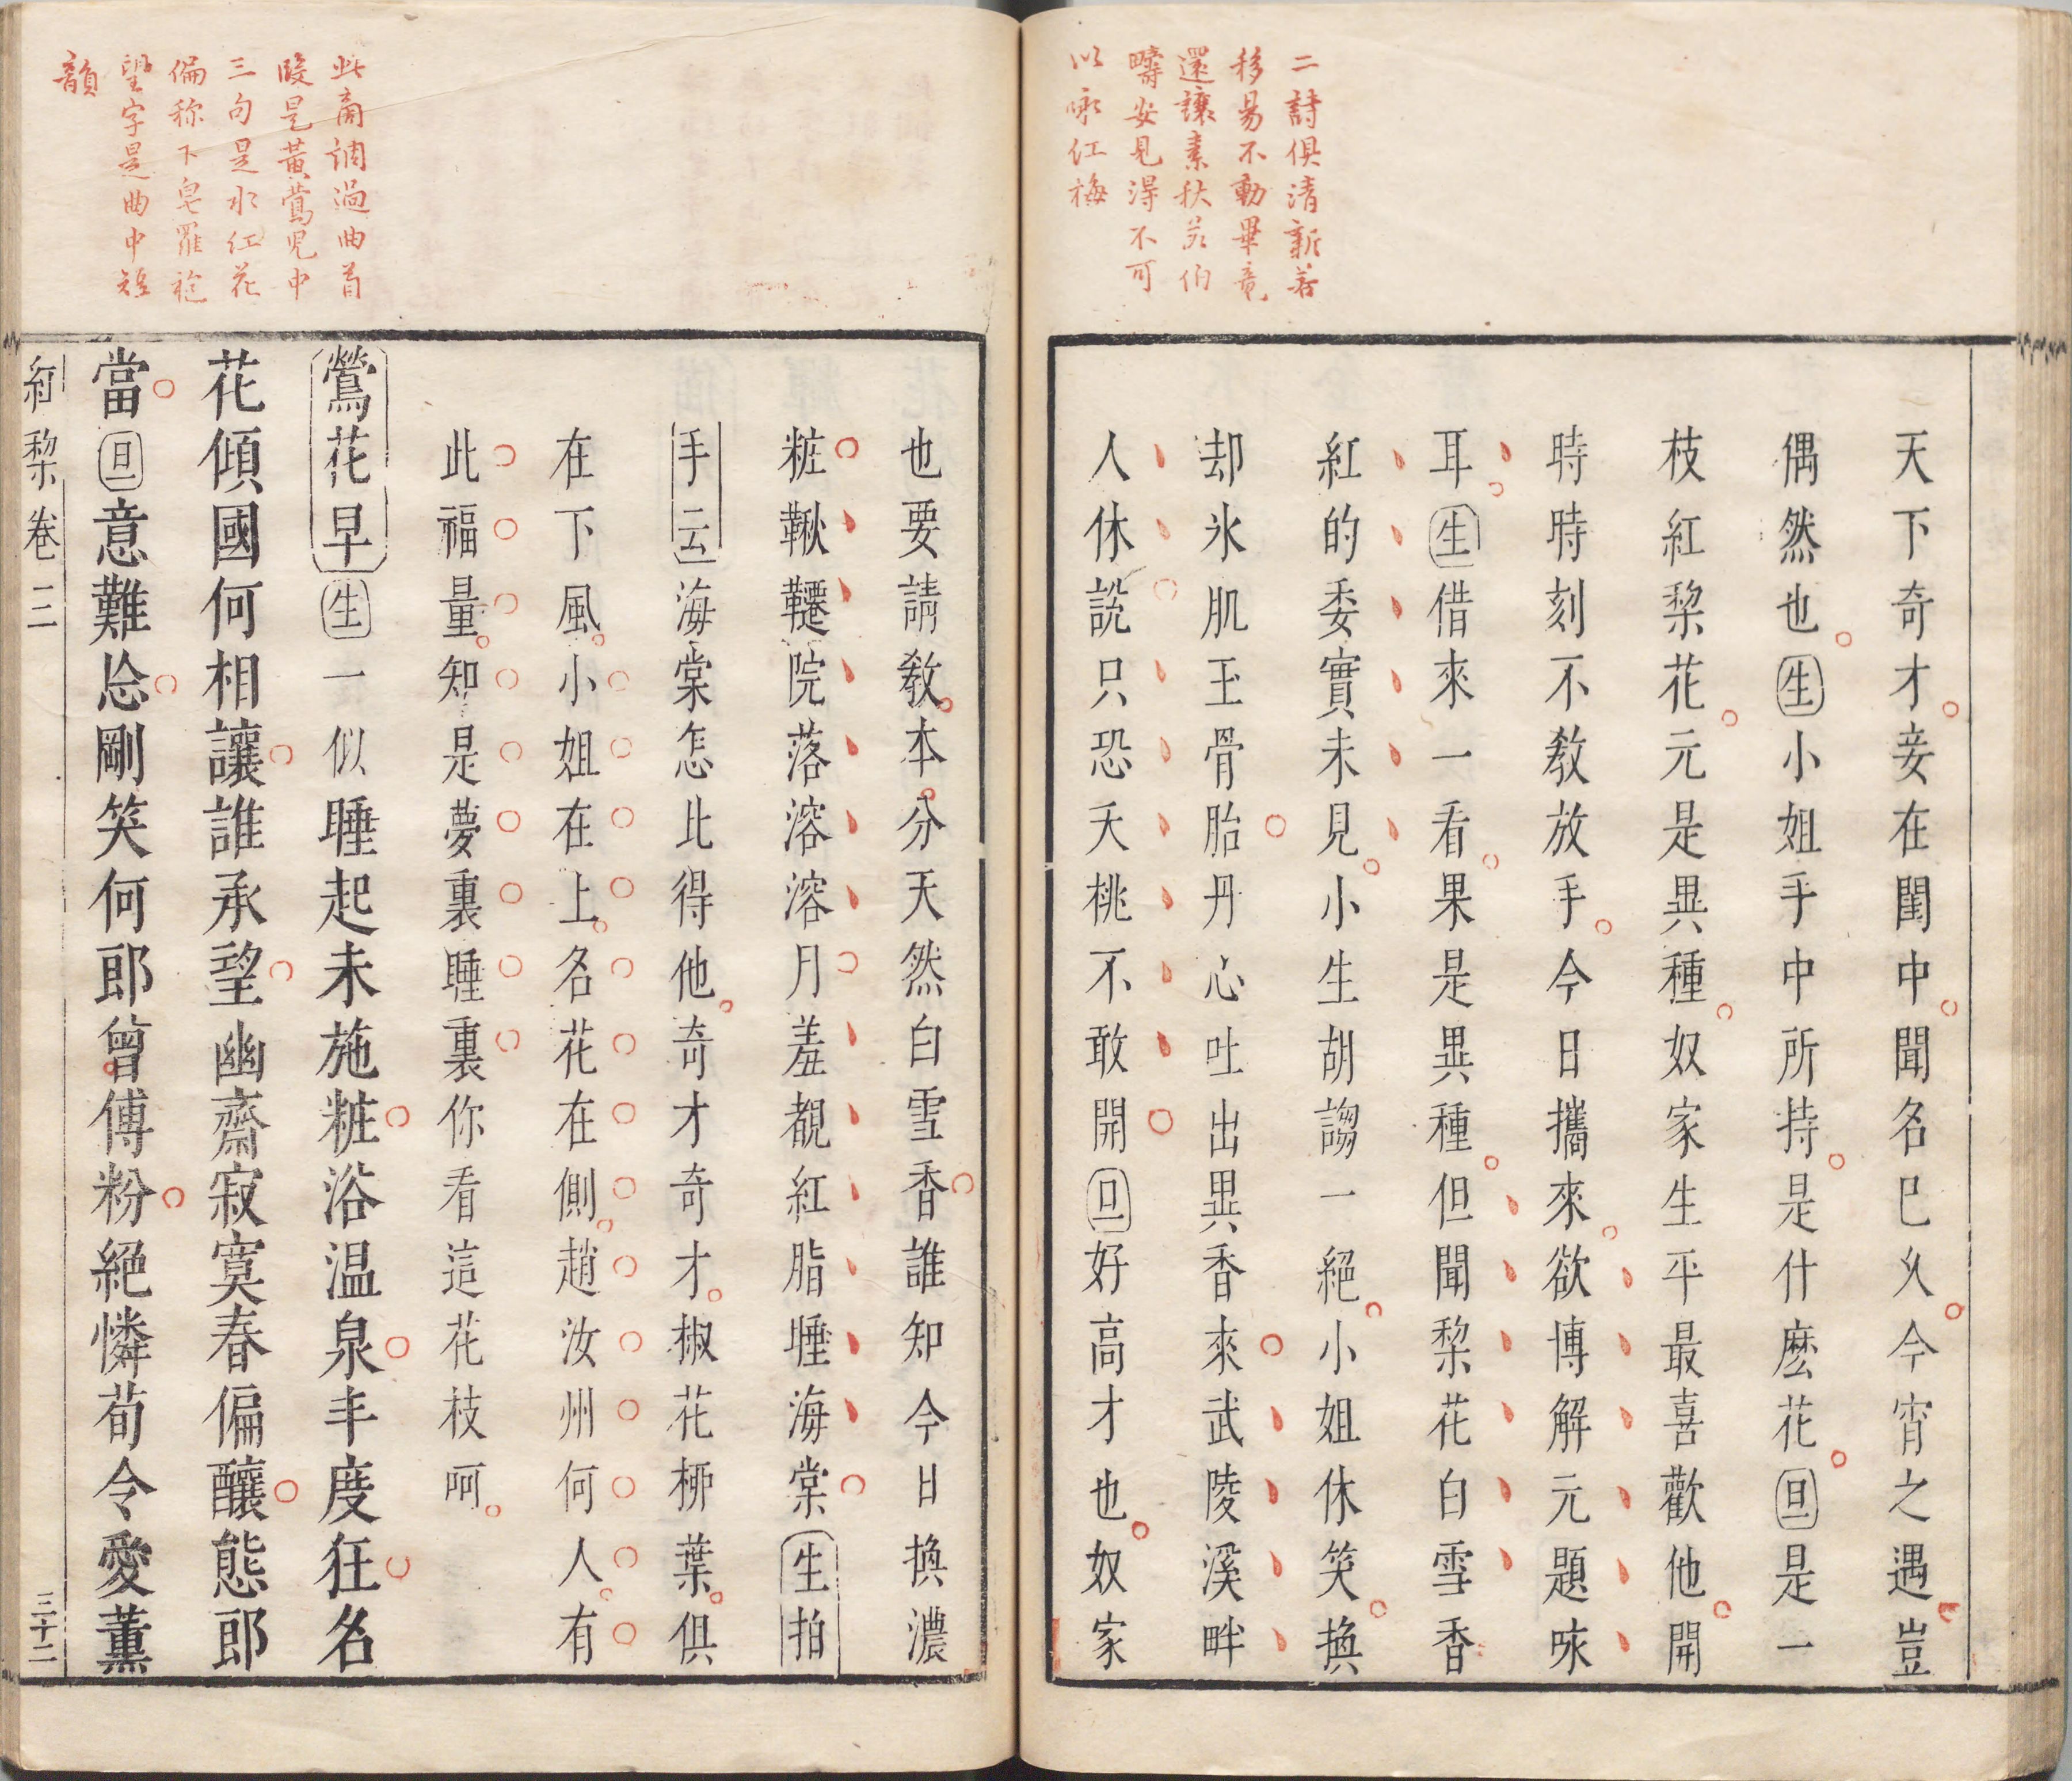 二詩俱清新若
移易不動畢竟
還讓素秋若伯
疇安見得不可
以咏红梅
天下奇才妾在閨中聞名巳乆今宵之遇豈
偶然也生小姐手中所持是什麽花旦是一
枝紅棃花元是異種奴家生平最喜歡他開
時時刻不教放手今日攜來欲博解元題咏
耳生借來一看果是異種但聞棃花白雪香
紅的委實未見小生胡謅一絕小姐休笑換
却氷肌玉骨胎丹心吐出異香來武陵溪畔
人休說只恐夭桃不敢開旦好高才也奴家
此商調過曲首
段是黃鶯兒中
三句是水红花
偏称下皂羅袍
望字是曲中短
韻
也要請教本分天然白雪香誰知今日換濃
粧鞦韆院落溶溶月羞覩紅脂睡海棠生拍
手云海棠怎比得他奇才奇才椒花柳葉俱
在下風小姐在上名花在側趙汝州何人有
此福量知是夢裏睡裏你看這花枝呵
鶯花早生一似睡起未施粧浴温泉丰度狂名
花傾國何相讓誰承望幽齋寂寞春偏釀態郎
當旦意難忩剛笑何郎曾傅粉絕憐荀令愛薰
紅棃卷二
三十二